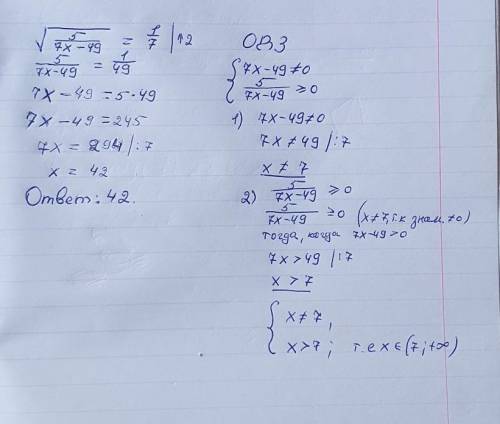 √(5/(7x-49)) = 1/7 |↑2
5/(7x-49) = 1/49
7x-49 = 5·49
7x-49 = 245
7x = 294 |:7
x = 42
Ответ: 42.
ОДЗ
{ 7x-49≠0
5/(7x-49) ≥0
1) 7x-49≠0
7x≠49 |:7
x≠7
2) 5/(7x-49) ≥0
5/(7x-49) ≥0 (x≠7, т.к знам. ≠0)
тогда, когда 7x-49>0
7x>49 |:7
x>7
{ x≠7,
x>7; т.е x∈(7;+∞)